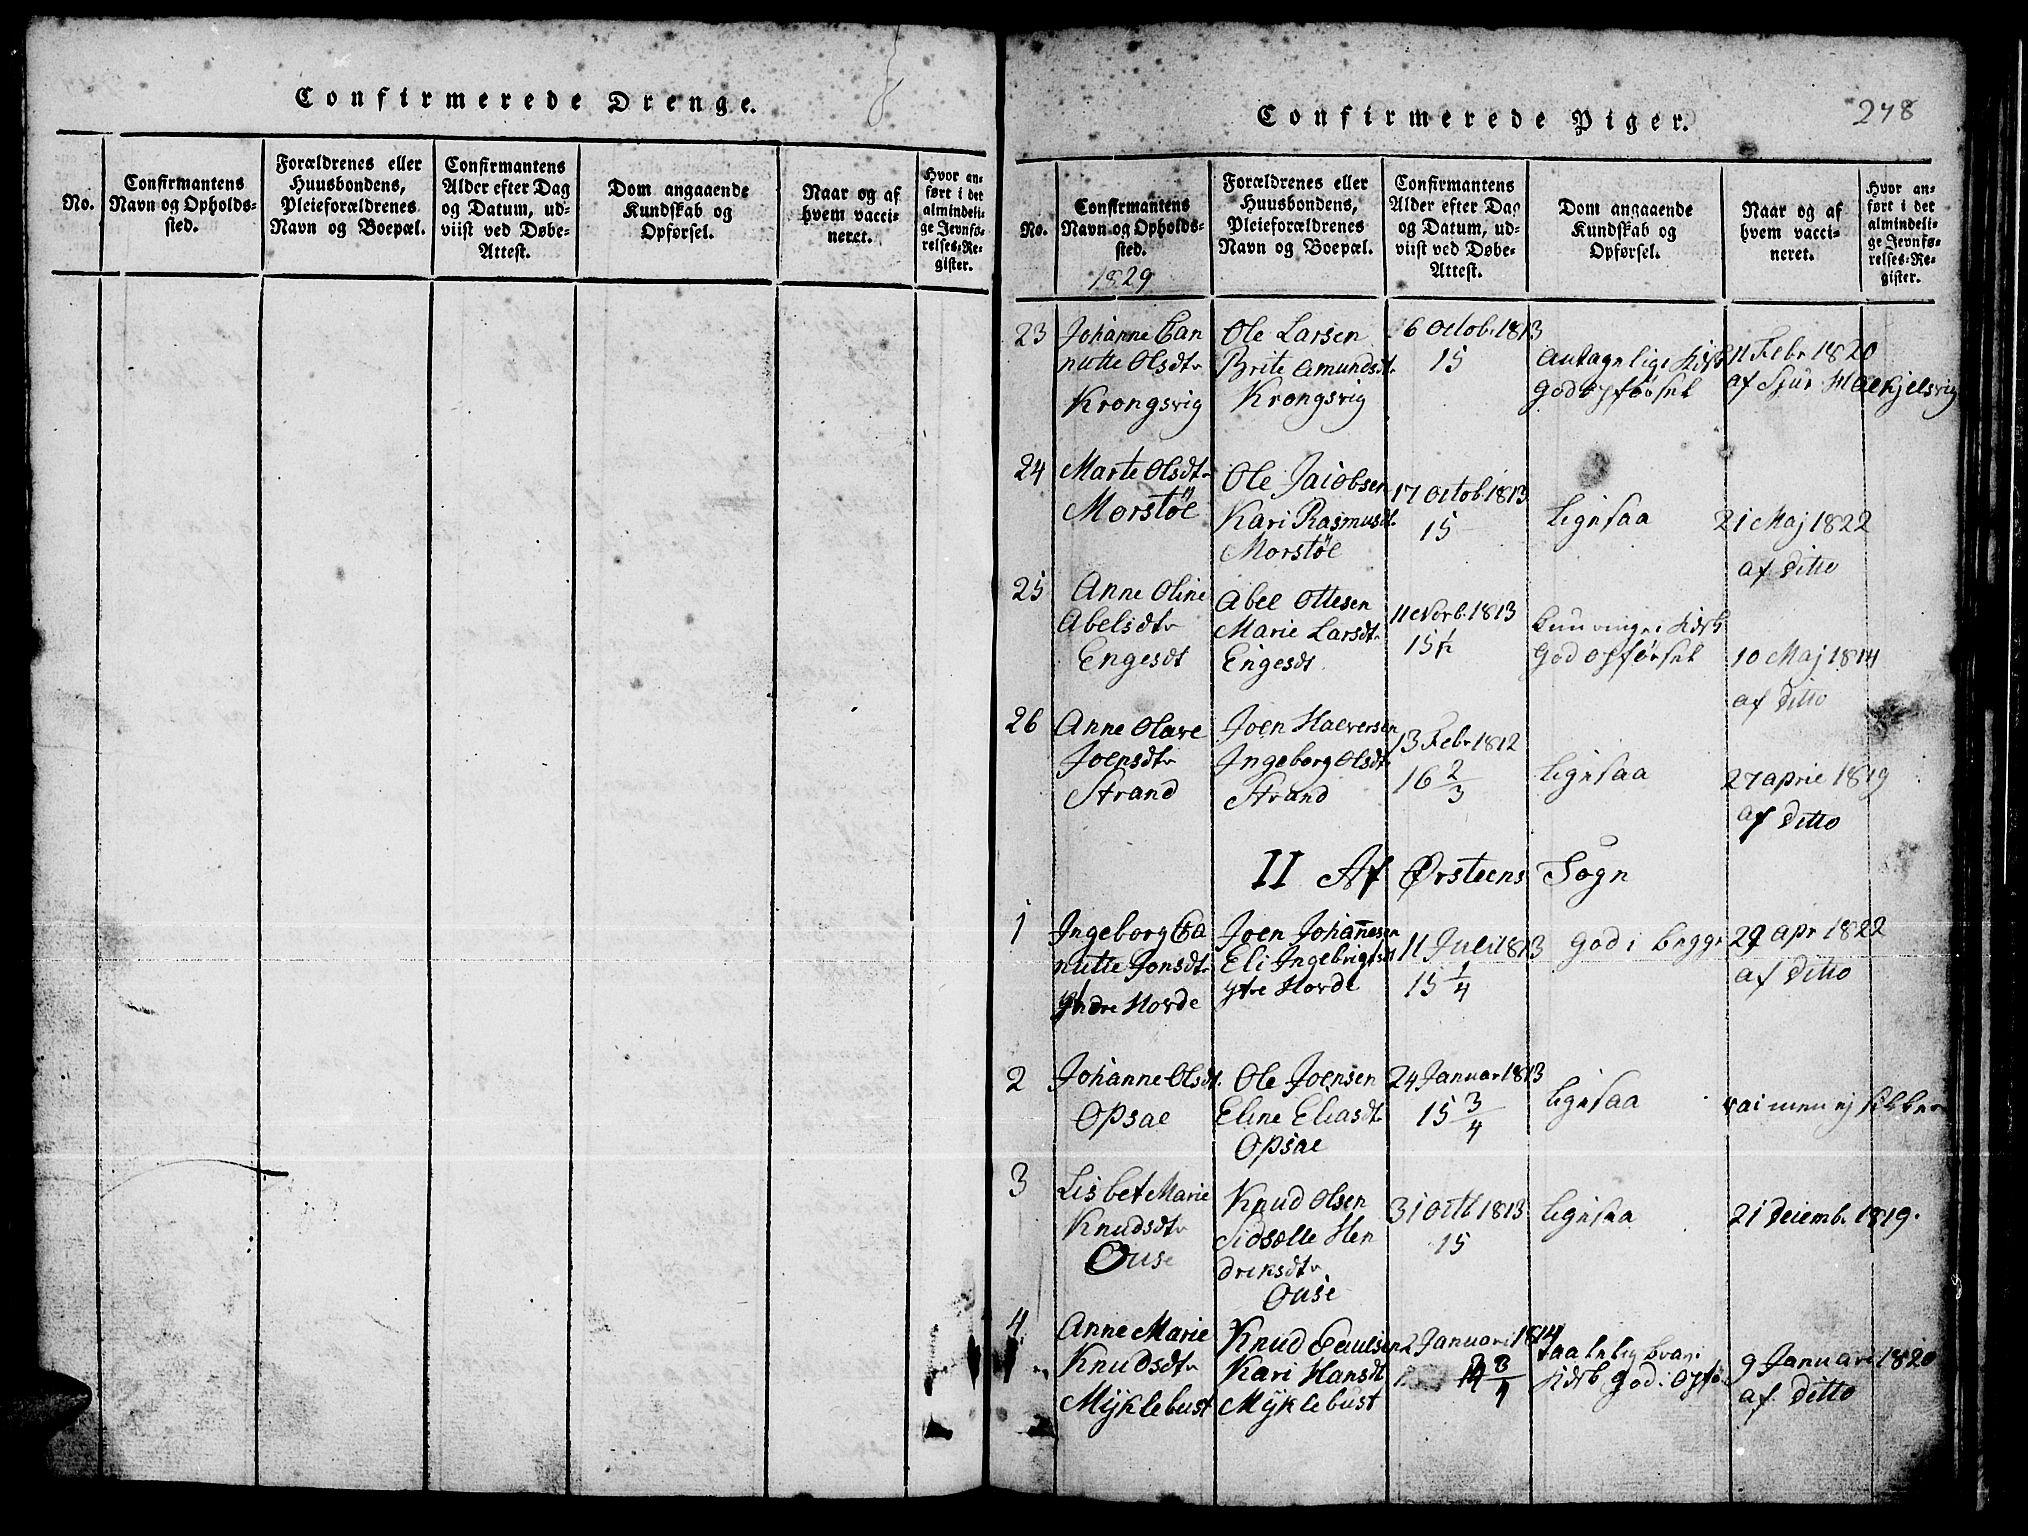 Confirmerede Drenge.
No.
Confirmantens
Navn og Opholds-
sted.
Forældrenes eller
Huusbondens,
Pleieforældrenes
Navn og Boepæl.
Confirmantens
Alder efter Dag
og Datum, ud-
viist ved Døbe-
Attest.
Dom angaaende
Kundskab og
Opførsel.
Naar og af
hvem vacci-
neret.
Hvor an-
ført i det
almindeli-
ge Jevnfø-
relses-Re-
gister.
Confirmerede Piger.
248
No.
Confirmantens
Navn og Opholds-
sted.
1829
Forældrenes eller
Huusbondens,
Pleieforældrenes
Navn og Boepæl.
Confirmantens
Alder efter Dag
og Datum, ud-
viist ved Døbe-
Attest.
Dom angaaende
Kundskab og
Opførsel.
Naar og af
hvem vacci-
neret.
Hvor an-
ført i det
almindeli-
ge Jevnfø-
relses-Re-
gister.
23
Johanne
Olsdtr
Krongsvig
Ole Larsen
Brite Amundsdtr
Krongsvig
6 Octob. 1813
15
God opførsel
11 Febr 1820
af Sjur
24
Marte Olsdtr
Morstøl
Ole Jacobsen
Kari Rasmusdt.
Morstøl
17 Octob. 1813
15
ligesaa
21 Maj 1822
af Ditto
25
Anne Oline
Abelsdtr
Engesdt
Abel Ottesen
Marie Larsdtr
Engesdt
11 Novb. 1813
15 1/2
God opførsel
10 Maj 1814
af Ditto
26
Anne Olave
Joensdtr
Strand
Joen Halversen
Ingeborg Olsdt.
Strand
13 Febr 1812
16 2/3
ligesaa
27 April 1819
af Ditto
II Af Ørsteens Sogn
1
Ingeborg
Jonsdtr
Hovde
Joen Johannesen
Eli
Ytre Hovde
11 Juli 1813
15 1/4
God i begge
Apr 1822
af Ditto
2
Johanne Olsdt.
Opsal
Ole Joensen
Eline Eliasdt.
Opsal
24 Januar 1813
15 3/4
ligesaa
3
Lisbet Marie
Knudsdtr
Ouse
Knud Olsen
Sidselle Hen
driksdtr
Ouse
31 Octb 1813
15
ligesaa
21 Decemb. 1819.
4
Anne Marie
Knudsdtr
Myklebust
Knud Paulsen
Kari Hansdt
Myklebust
2 Januari 1814
9 Januari 1820
af Ditto